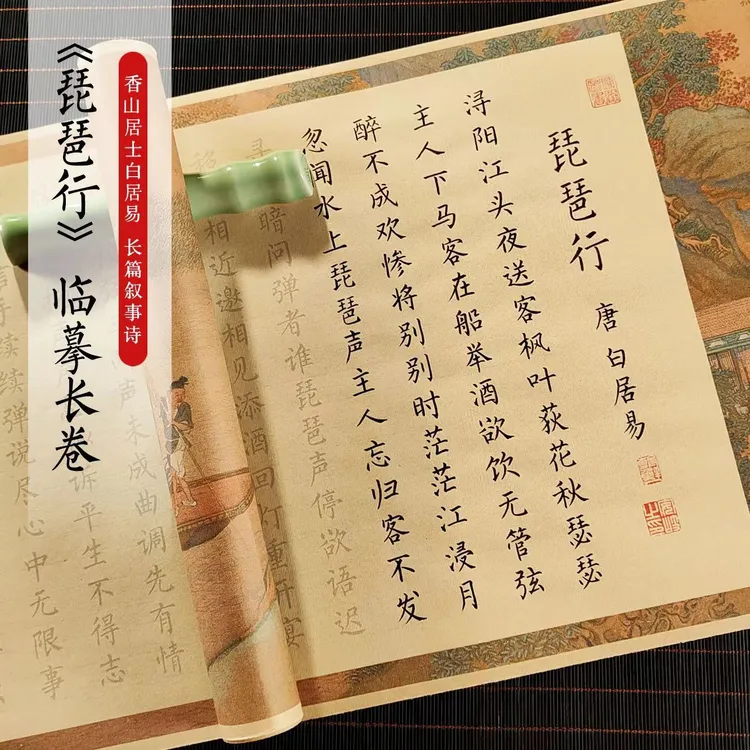 《琵琶行》临摹长卷
香山居士白居易 长篇叙事诗
琵琶行
唐 白居易
浔阳江头夜送客枫叶荻花秋瑟瑟
主人下马客在船举酒欲饮无管弦
醉不成欢惨将别别时茫茫江浸月
忽闻水上琵琶声主人忘归客不发
寻暗问弹者谁琵琶声停欲语迟
移相近邀相见添酒回灯重开宴
声未成曲调先有情
诉平生不得志
手续续弹说尽心中无限事